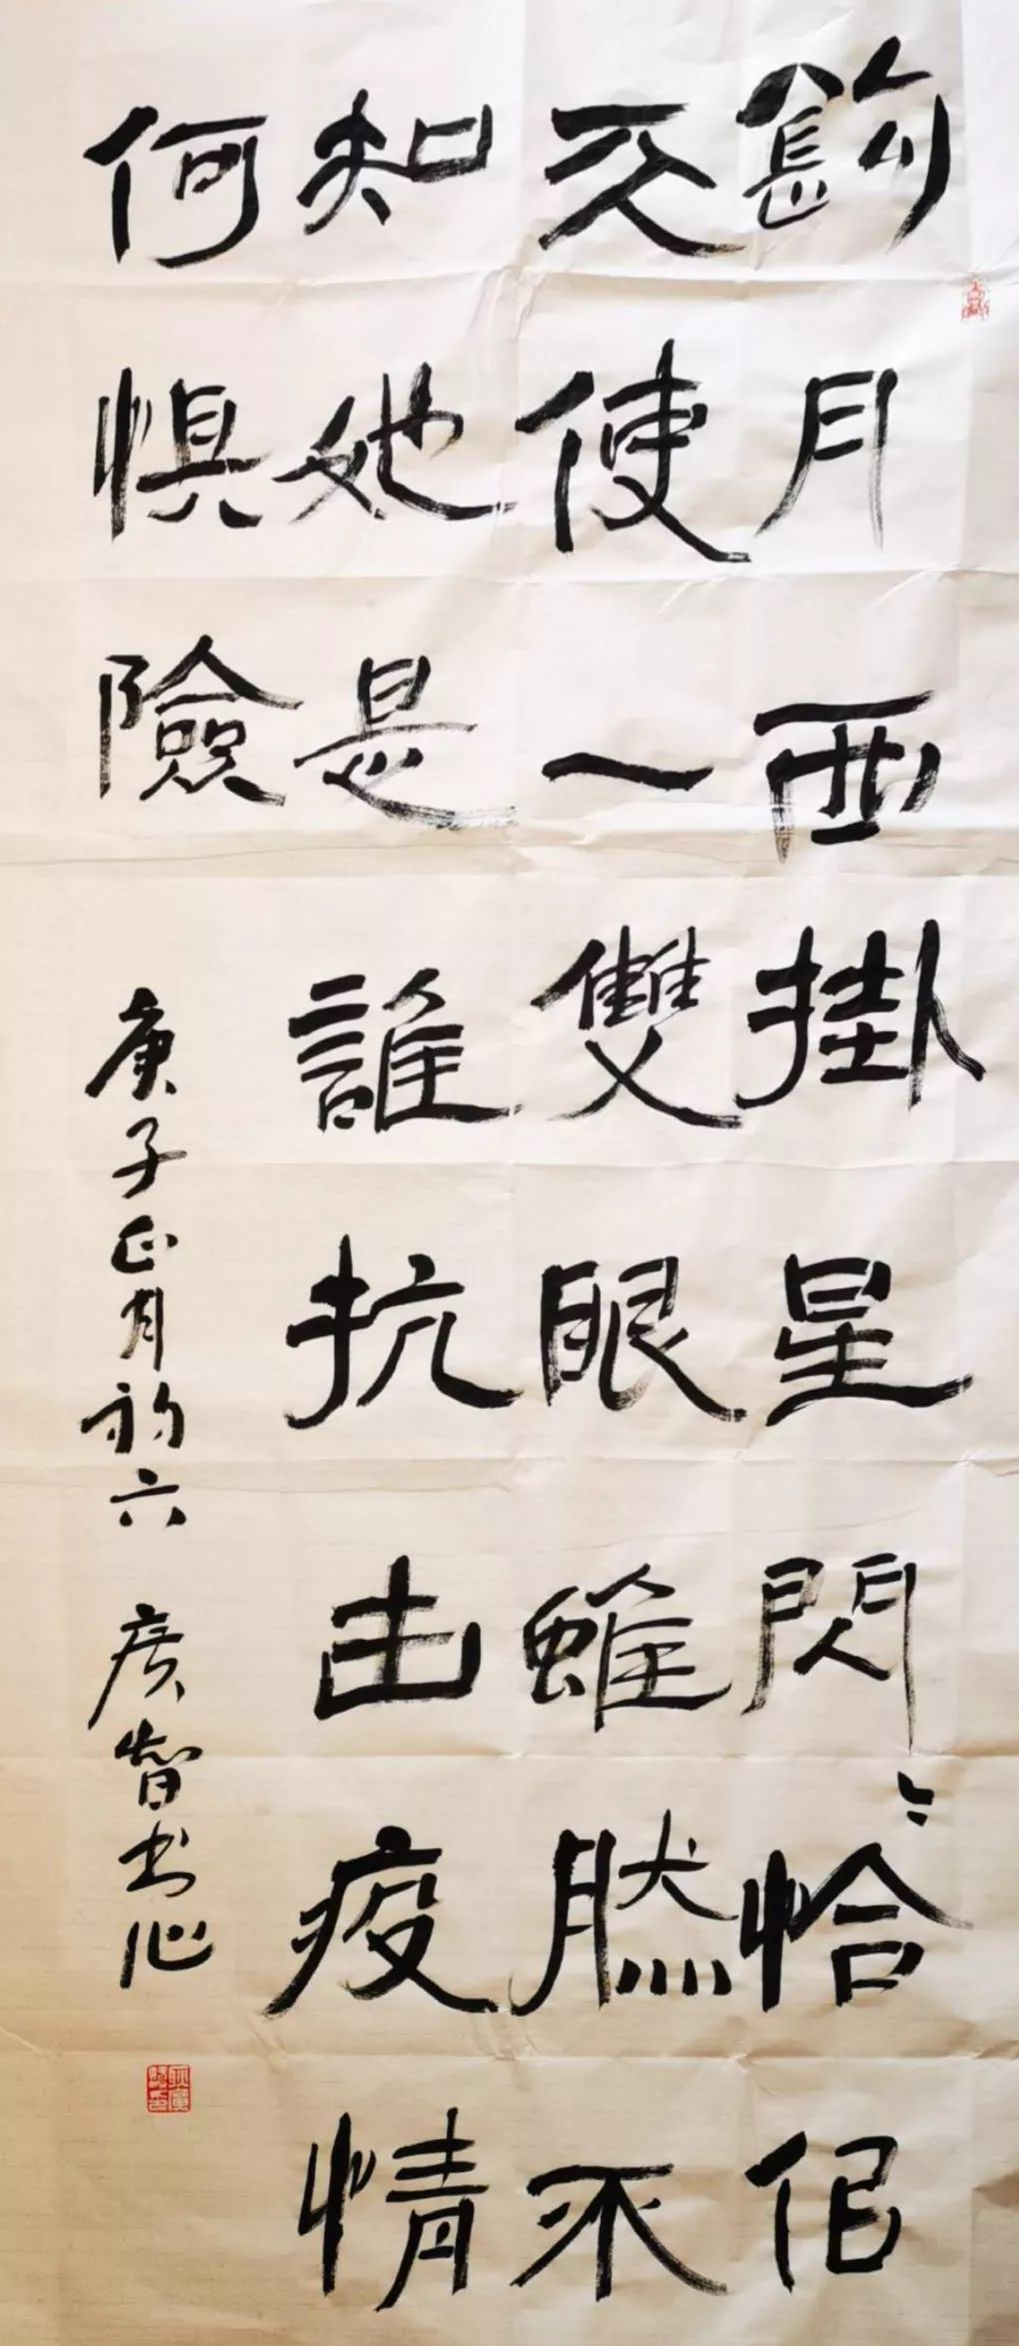 鈎月西掛星閃閃恰似
天使一雙眼雖然不
知她是誰抗击疫情
何惧險
庚子正月初六 广智书